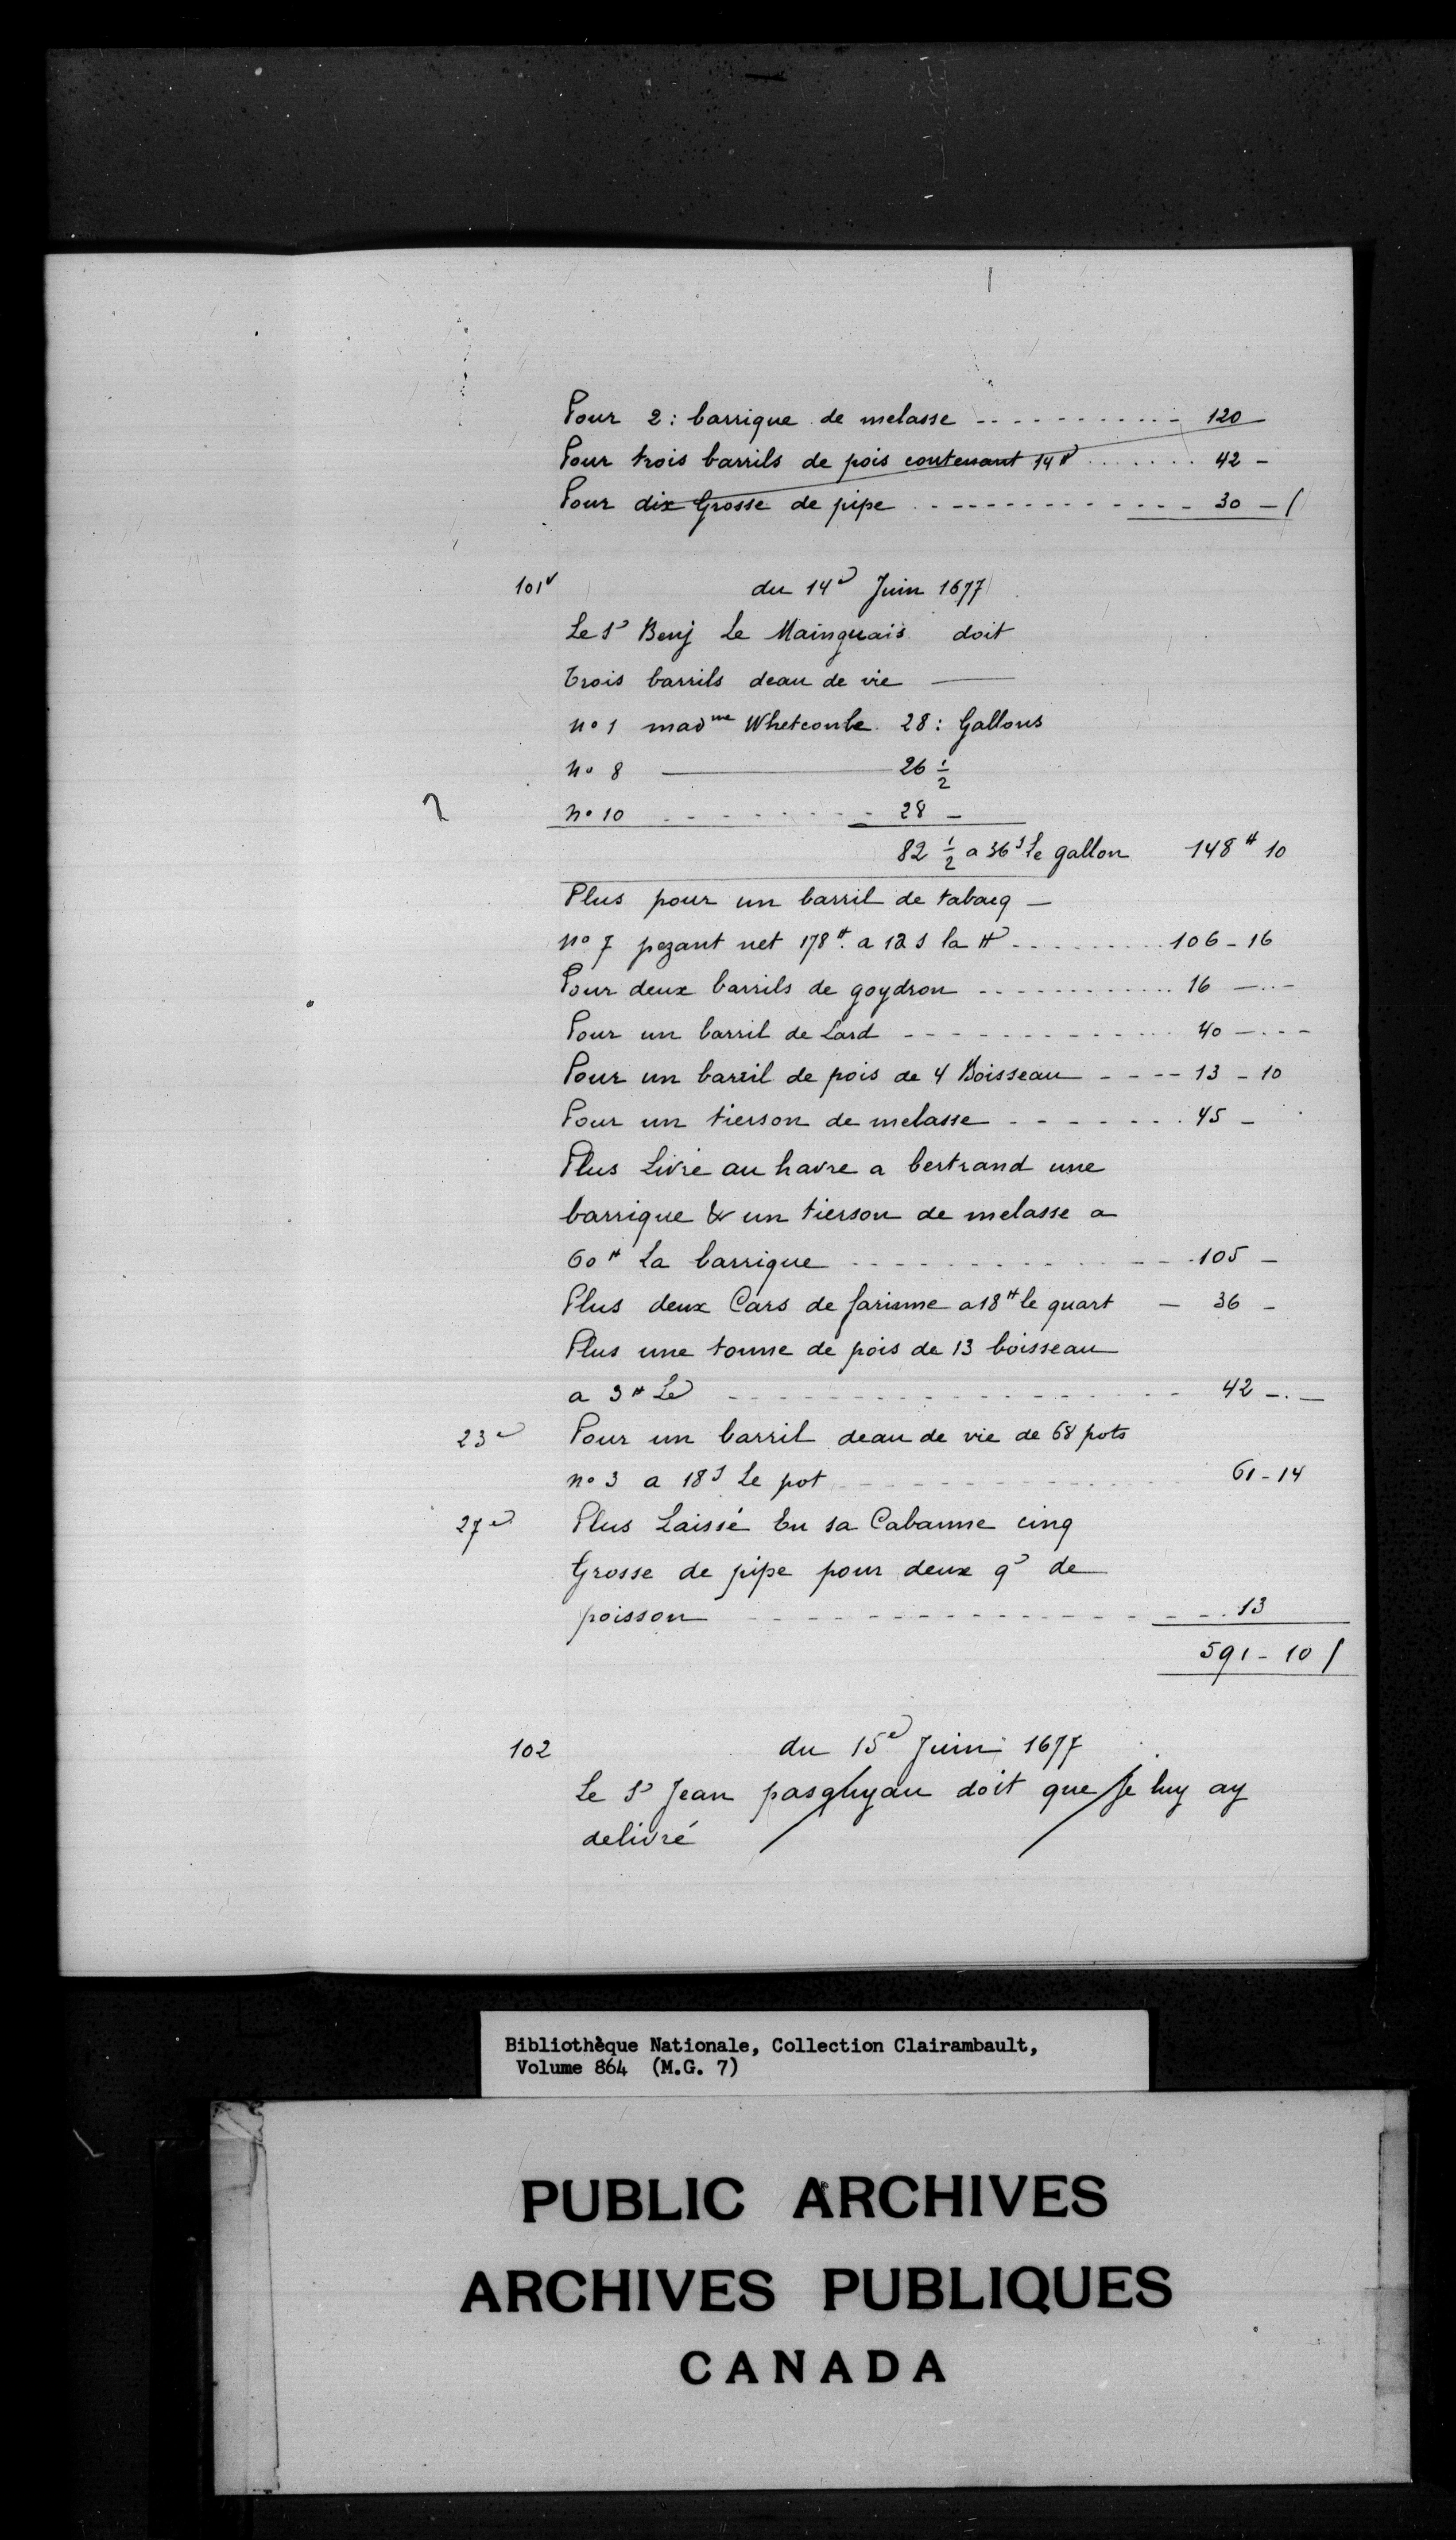 Pour 2: barrique de melasse ............ 120
Pour trois barrils de pois contenant 14 ....... 42 -
Pour dix Grosse de pipe ............. 30 -/
101v du 14e Juin 1677
Le Sr Benj Le Mainguais doit
trois barrils deau de vie —
no 1 madme Whetcombe 28: Gallons
No 8 — 26 1/2
No 10 ........ 28 -
82 1/2 a 36s Le gallon 148# 10
Plus pour un barril de tabacq —
no 7 pezant net 178#. a 12s la # ......... 106 - 16
Pour deux barrils de goydron ............ 16 -
Pour un barril de Lard ............ 40 -
Pour un barril de pois de 4 Boisseau ---- 13 - 10
Pour un tierson de melasse ........ 45 -
Plus Livré au havre a bertrand une
barrique & un tierson de melasse a
60# La barrique ............. 105 -
Plus deux Cars de farinne a 18# le quart — 36 -
Plus une tonne de pois de 13 boisseau
a 3# Le ............... 42 -
23e Pour un barril deau de vie de 68 pots
no 3 a 18s Le pot ............ 61-14
27e Plus Laissé En sa Cabanne cinq
Grosse de pipe pour deux qx de
poisson ............... 13
591 - 10 /
102 du 15e Juin 1677
Le Sr Jean pasghyau doit que Je luy ay
delivré
Bibliothèque Nationale, Collection Clairambault,
Volume 864 (M.G. 7)
PUBLIC ARCHIVES
ARCHIVES PUBLIQUES
CANADA